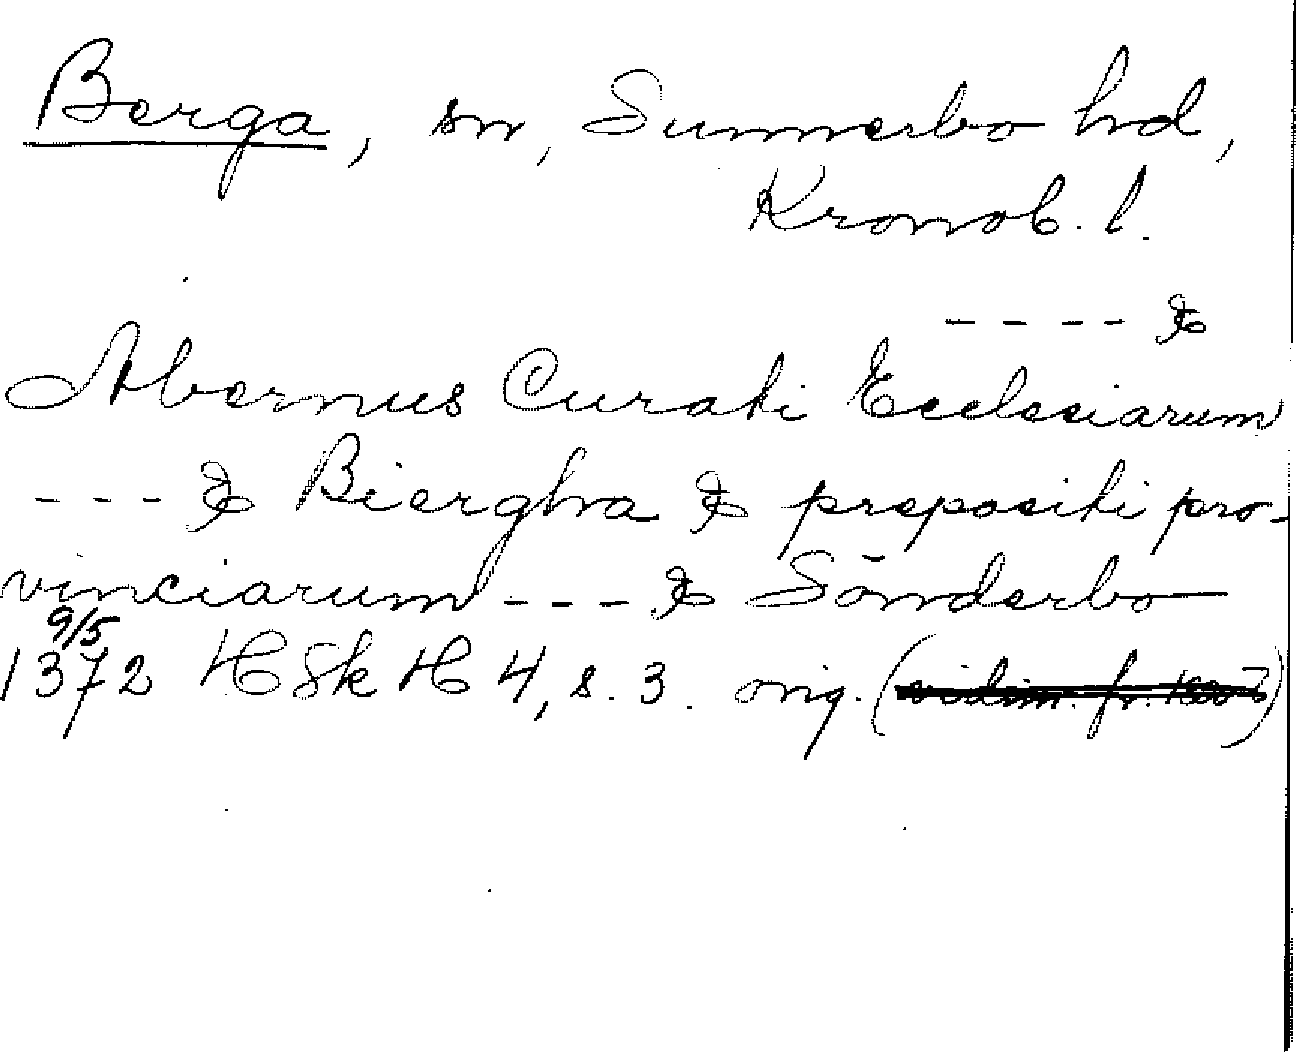 Berga, sn, Sunnerbo hd,
Kronob. l.
- - - - &
Abernus Curati Ecclesiarum
- - - & Biergha & prepositi pro-
vinciarum - - - & Sōnderbo
9/5
1372 HSk H 4, s. 3. orig. (vidim. fr.